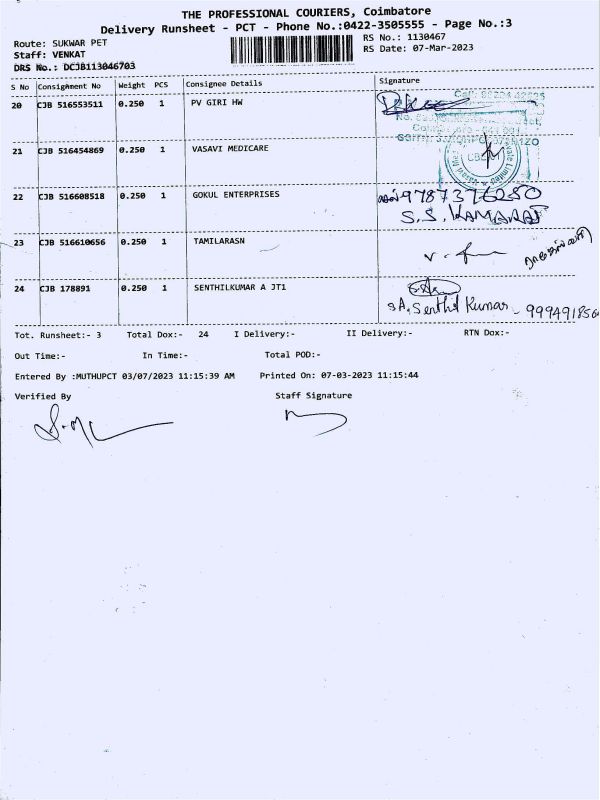 THE PROFESSIONAL COURIERS, Coimbatore
Delivery Runsheet - PCT - Phone No.:0422-3505555 - Page No.:3
Route: SUKWAR PET
RS No.: 1130467
Staff: VENKAT
RS Date: 07-Mar-2023
DRS No.: DCJB113046703
S No Consignment No Weight PCS Consignee Details Signature
20 CJB 516553511 0.250 1 PV GIRI HW
21 CJB 516454869 0.250 1 VASAVI MEDICARE
22 CJB 516608518 0.250 1 GOKUL ENTERPRISES 9787376280
S.S. KAMARAJ
23 CJB 516610656 0.250 1 TAMILARASN
24 CJB 178891 0.250 1 SENTHILKUMAR A JT1
SA, Senthil Kumar
Tot. Runsheet:- 3 Total Dox:- 24 I Delivery:- II Delivery:- RTN Dox:-
Out Time:- In Time:- Total POD:-
Entered By :MUTHUPCT 03/07/2023 11:15:39 AM Printed On: 07-03-2023 11:15:44
Verified By Staff Signature